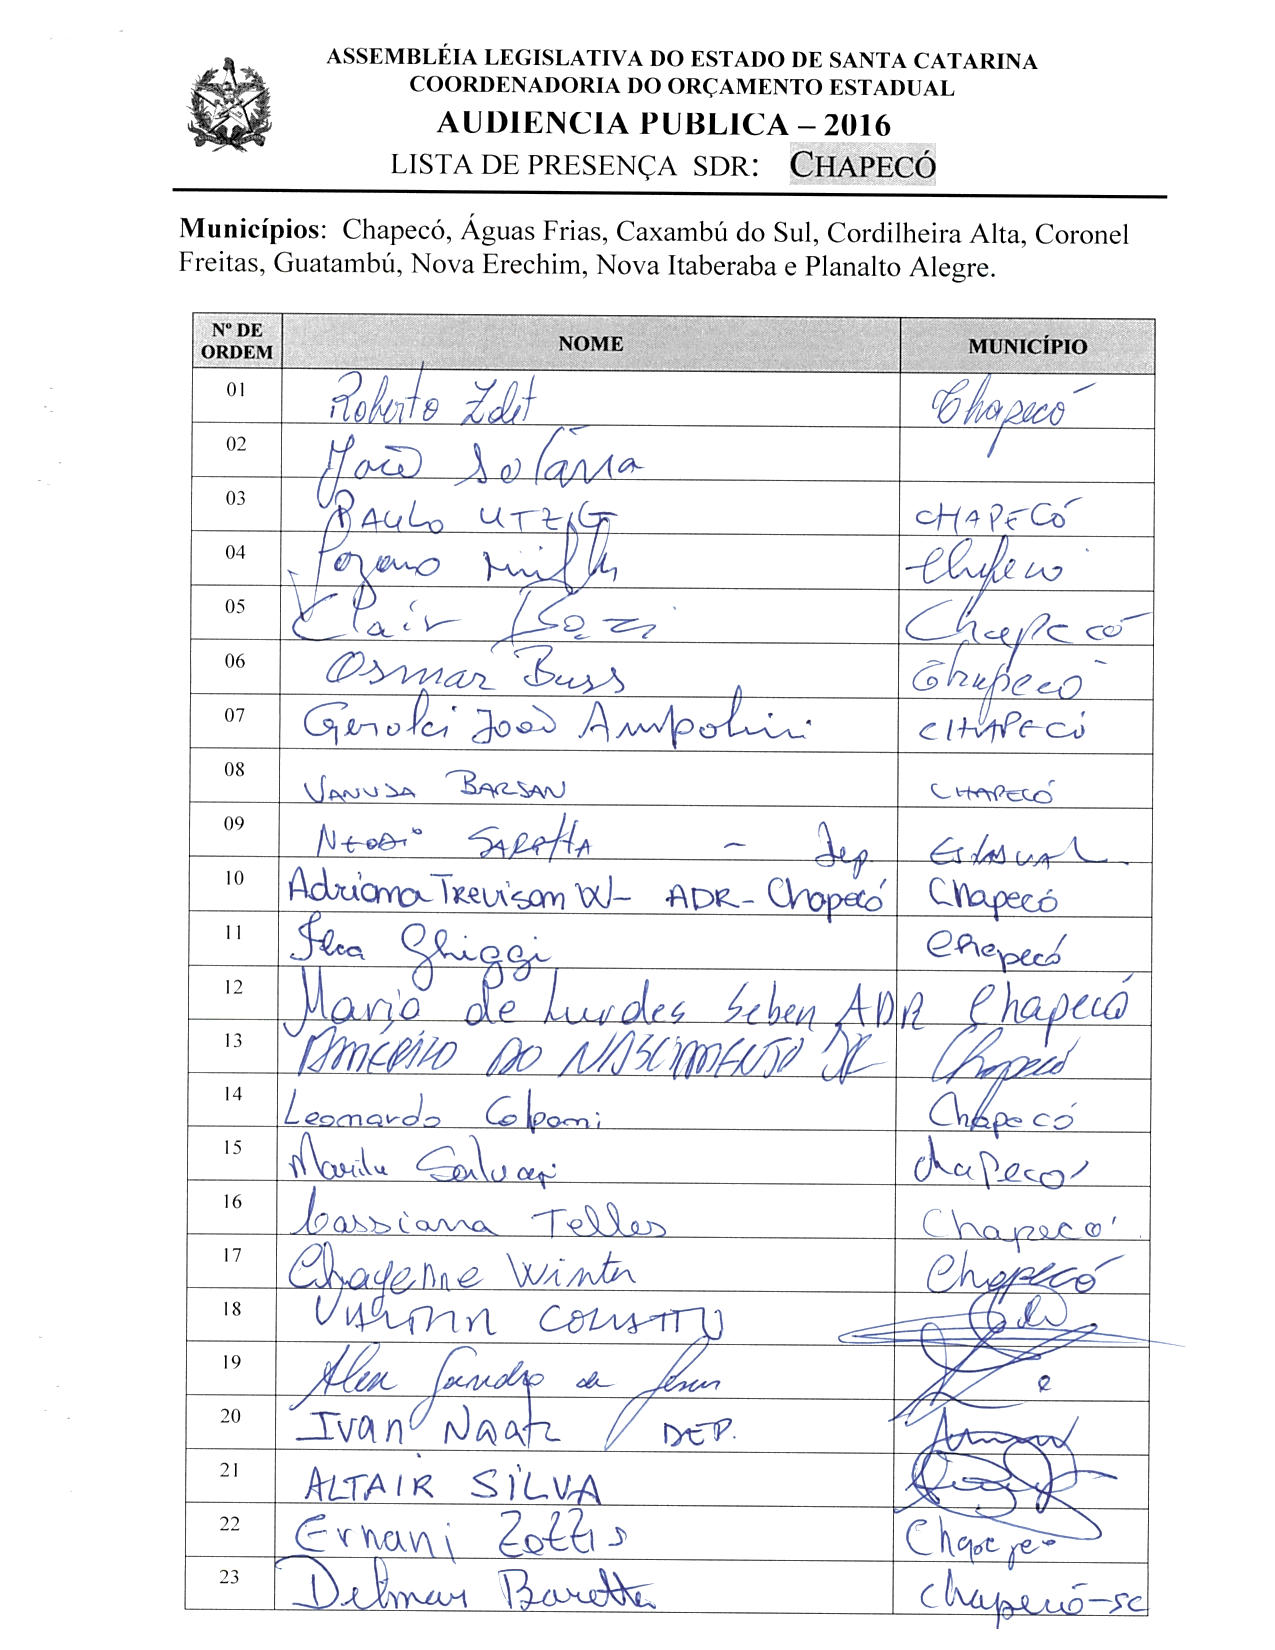 ASSEMBLÉIA LEGISLATIVA DO ESTADO DE SANTA CATARINA
COORDENADORIA DO ORÇAMENTO ESTADUAL
AUDIENCIA PUBLICA – 2016
LISTA DE PRESENÇA SDR: CHAPECÓ
Municípios: Chapecó, Águas Frias, Caxambú do Sul, Cordilheira Alta, Coronel
Freitas, Guatambú, Nova Erechim, Nova Itaberaba e Planalto Alegre.
Nº DE ORDEM NOME MUNICÍPIO
01 Roberto Chapecó
02 João
03 PAULO UTZIG CHAPECÓ
04 Chapecó
05 Clair Chapecó
06 Osmar Buss Chapecó
07 João CHAPECÓ
08 VANUSA BARSAN CHAPECÓ
09 SARETTA – Dep. ESTADUAL
10 Adriana Trevisan W– ADR – Chapecó Chapecó
11 Ghiggi Chapecó
12 Maria de Lurdes Seben ADR Chapecó
13 AMÉRICO DO NASCIMENTO JR Chapecó
14 Leonardo Chapecó
15 Chapecó
16 Cassiana Telles Chapecó
17 Chayenne Winter Chapecó
18
19 Alex Sandro de Jesus
20 Ivan Naatz DEP.
21 ALTAIR SILVA
22 Ernani Zottis Chapecó
23 Delmar Baretta Chapecó-SC